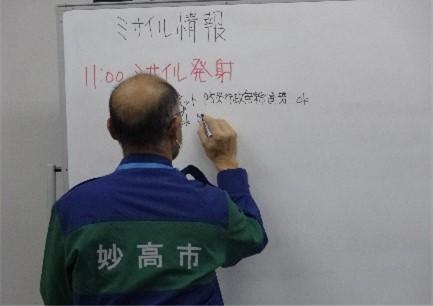 ミサイル情報
11:00 ミサイル発射
ット 防災行政無線 ok
ok
妙高市